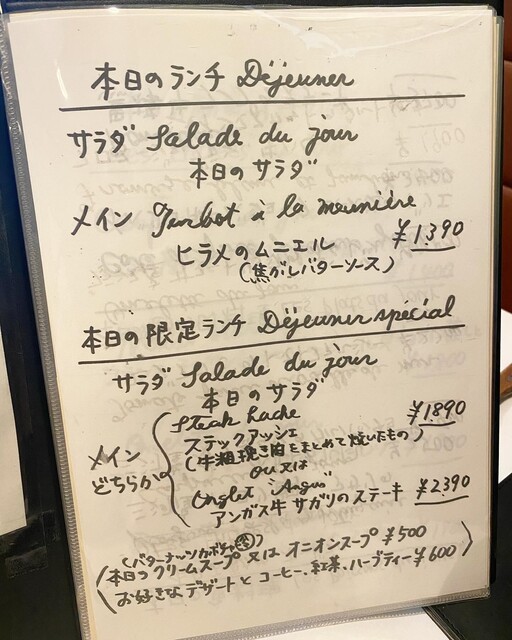 本日のランチ Déjeuner
サラダ Salade du jour
本日のサラダ
メイン Turbot à la meunière
ヒラメのムニエル ¥1390
(焦がしバターソース)
本日の限定ランチ Déjeuner spécial
サラダ Salade du jour
本日のサラダ
Steak hache ¥1890
ステックアッシェ
(牛粗挽き肉をまとめて焼いたもの)
メイン どちらか
ou 又は
Onglet "Angus"
アンガス牛 サガリのステーキ ¥2390
(バターナッツカボチャ 冷)
(本日のクリームスープ 又は オニオンスープ ¥500
お好きなデザートとコーヒー、紅茶、ハーブティー ¥600)